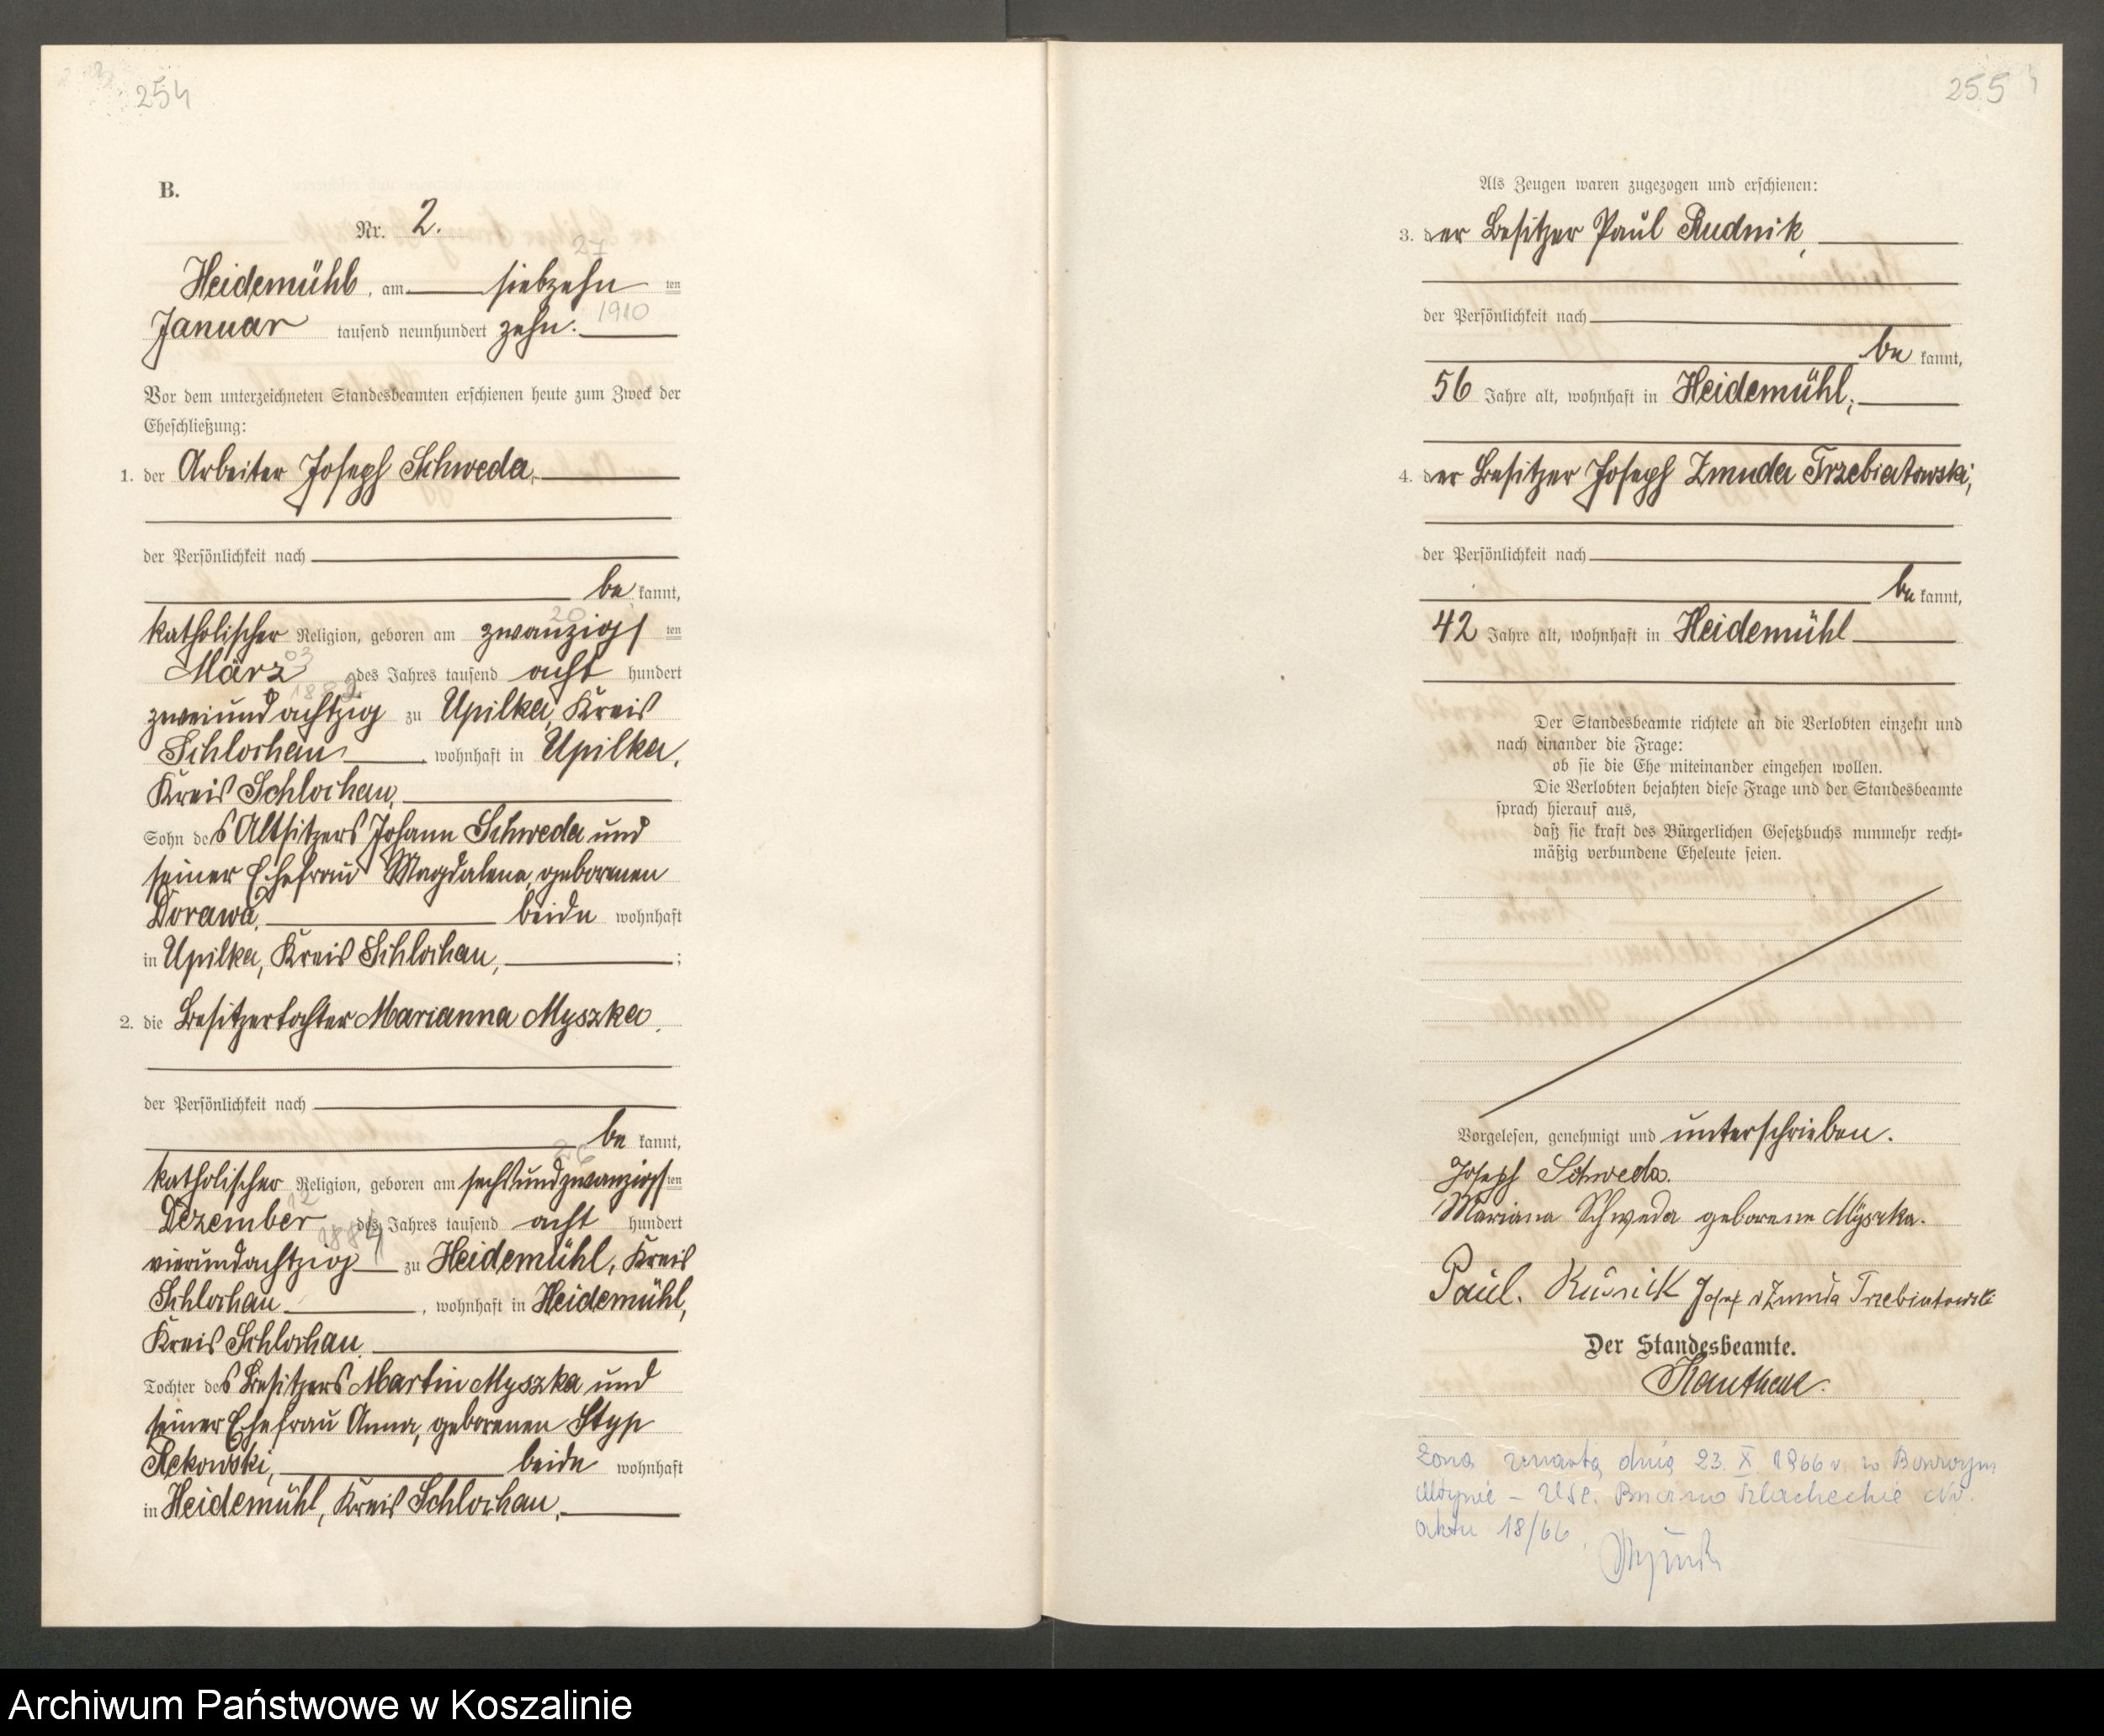 254
B.
Nr. 2.
27
Heidemühl, am siebzehn ten
Januar tausend neunhundert zehn. 1910
Vor dem unterzeichneten Standesbeamten erschienen heute zum Zweck der
Eheschließung:
1. der Arbeiter Joseph Schweda,
der Persönlichkeit nach
be kannt,
20
katholischer Religion, geboren am zwanzigs ten
März 03 des Jahres tausend acht hundert
1882
zweiundachtzig zu Upilka, Kreis
Schlochau, wohnhaft in Upilka,
Kreis Schlochau,
Sohn des Altsitzers Johann Schweda und
seiner Ehefrau Magdalena, geborenen
Dorawa, beide wohnhaft
in Upilka, Kreis Schlochau, ;
2. die Besitzertochter Marianna Myszka,
der Persönlichkeit nach
be kannt,
26
katholischer Religion, geboren am sechsundzwanzigs ten
12
Dezember des Jahres tausend acht hundert
1884
vierundachtzig zu Heidemühl, Kreis
Schlochau, wohnhaft in Heidemühl,
Kreis Schlochau,
Tochter des Besitzers Martin Myszka und
seiner Ehefrau Anna, geborenen Styp
Rekowski, beide wohnhaft
in Heidemühl, Kreis Schlochau,
255
Als Zeugen waren zugezogen und erschienen:
3. der Besitzer Paul Rudnik,
der Persönlichkeit nach
be kannt,
56 Jahre alt, wohnhaft in Heidemühl;
4. der Besitzer Joseph Zmuda Trzebiatowski,
der Persönlichkeit nach
be kannt,
42 Jahre alt, wohnhaft in Heidemühl
Der Standesbeamte richtete an die Verlobten einzeln und
nach einander die Frage:
ob sie die Ehe miteinander eingehen wollen.
Die Verlobten bejahten diese Frage und der Standesbeamte
sprach hierauf aus,
daß sie kraft des Bürgerlichen Gesetzbuchs nunmehr recht-
mäßig verbundene Eheleute seien.
Vorgelesen, genehmigt und unterschrieben.
Joseph Schweda.
Mariana Schweda geborene Myszka.
Paul. Rudnik Josef v Zmuda Trzebiatowski
Der Standesbeamte.
Żona zmarła dnia 23. X. 1966 r w Borowym
Młynie – USC. Borzyszkowy Nr.
aktu 18/66.
Archiwum Państwowe w Koszalinie